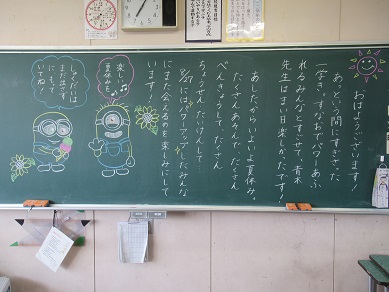 おはようございます！
あっという間にすぎさった、
一学き。すなおでパワーあふ
れるみんなとすごせて、青木
先生はまい日楽しかったです！
あしたから、いよいよ夏休み。
たくさんあそんで、たくさん
べんきょうして、たくさん
ちょうせん、たいけんして…
8/27にはパワーアップしたみんな
にまた会えるのを楽しみにして
います！
楽しい
夏休みを
しゅくだいは
まださずに
もって
てね！